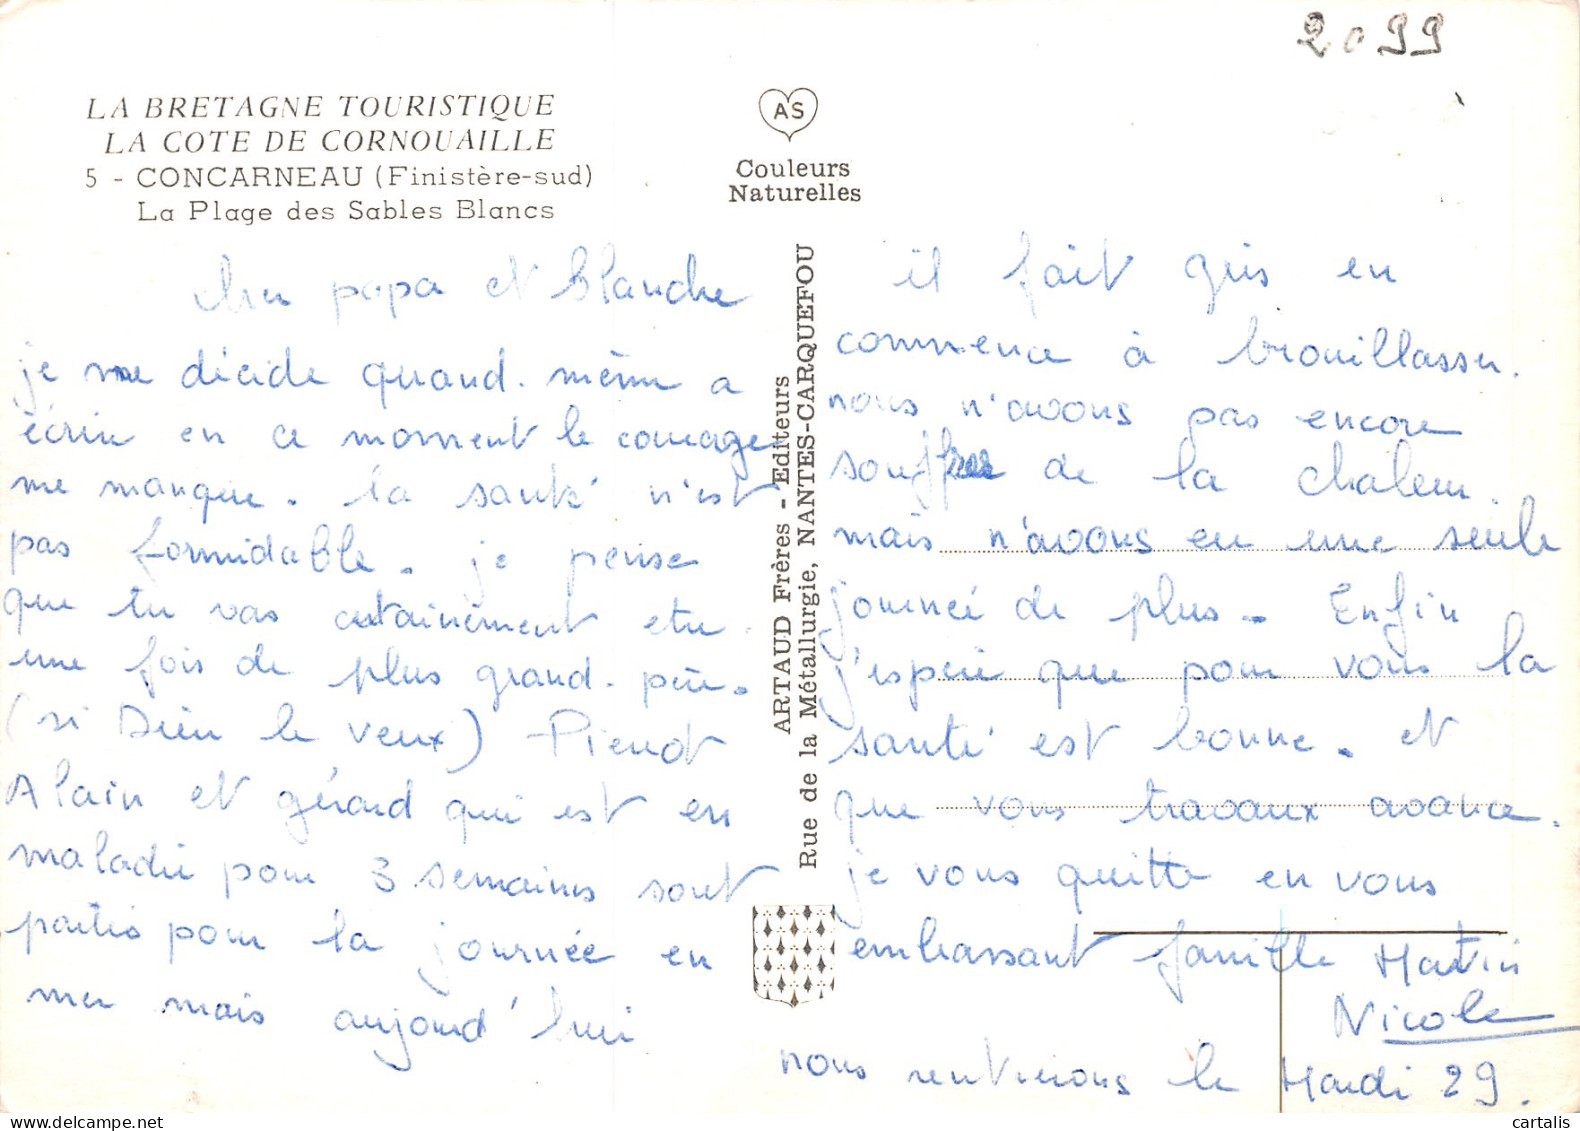 2099
LA BRETAGNE TOURISTIQUE
LA COTE DE CORNOUAILLE
5 - CONCARNEAU (Finistère-sud)
La Plage des Sables Blancs
AS
Couleurs
Naturelles
ARTAUD Frères - Editeurs
Rue de la Métallurgie, NANTES-CARQUEFOU
cher papa et blanche
je me décide quand. même a
écrire en ce moment le courage
me manque. la santé n'est
pas formidable. je pense
que tu vas certainement etre
une fois de plus grand. père.
(si Dieu le veux) Pierrot
Alain et gérard qui est en
maladie pour 3 semaines sont
partis pour la journée en
mer mais aujourd'hui
il fait gris en
commence à brouillasser.
nous n'avons pas encore
souffrer de la chaleur.
mais n'avons eu une seule
journée de pluis. Enfin
j'espère que pour vous la
santé est bonne. et
que vous travaux avance.
je vous quitte en vous
embrassant famille Martin
Nicole
nous rentrerons le Mardi 29.
cartalis